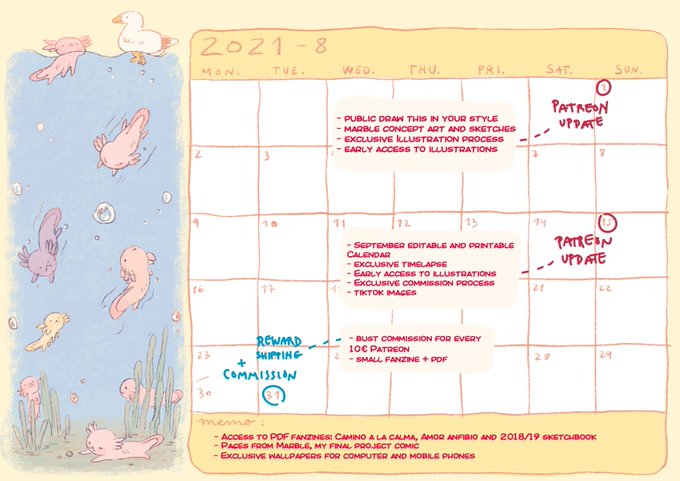 2021-8
MON. TUE. WED. THU. FRI. SAT. SUN.
1
- PUBLIC DRAW THIS IN YOUR STYLE
- MARBLE CONCEPT ART AND SKETCHES
- EXCLUSIVE ILLUSTRATION PROCESS
- EARLY ACCESS TO ILLUSTRATIONS
PATREON
UPDATE
2 3 7 8
9 10 11 12 13 14 15
- SEPTEMBER EDITABLE AND PRINTABLE
CALENDAR
- EXCLUSIVE TIMELAPSE
- EARLY ACCESS TO ILLUSTRATIONS
- EXCLUSIVE COMMISSION PROCESS
- TIKTOK IMAGES
PATREON
UPDATE
16 17 21 22
REWARD
SHIPPING
+
COMMISSION
- BUST COMMISSION FOR EVERY
10€ PATREON
- SMALL FANZINE + PDF
23 28 29
30 31
memo:
- ACCESS TO PDF FANZINES: CAMINO A LA CALMA, AMOR ANFIBIO AND 2018/19 SKETCHBOOK
- PAGES FROM MARBLE, MY FINAL PROJECT COMIC
- EXCLUSIVE WALLPAPERS FOR COMPUTER AND MOBILE PHONES